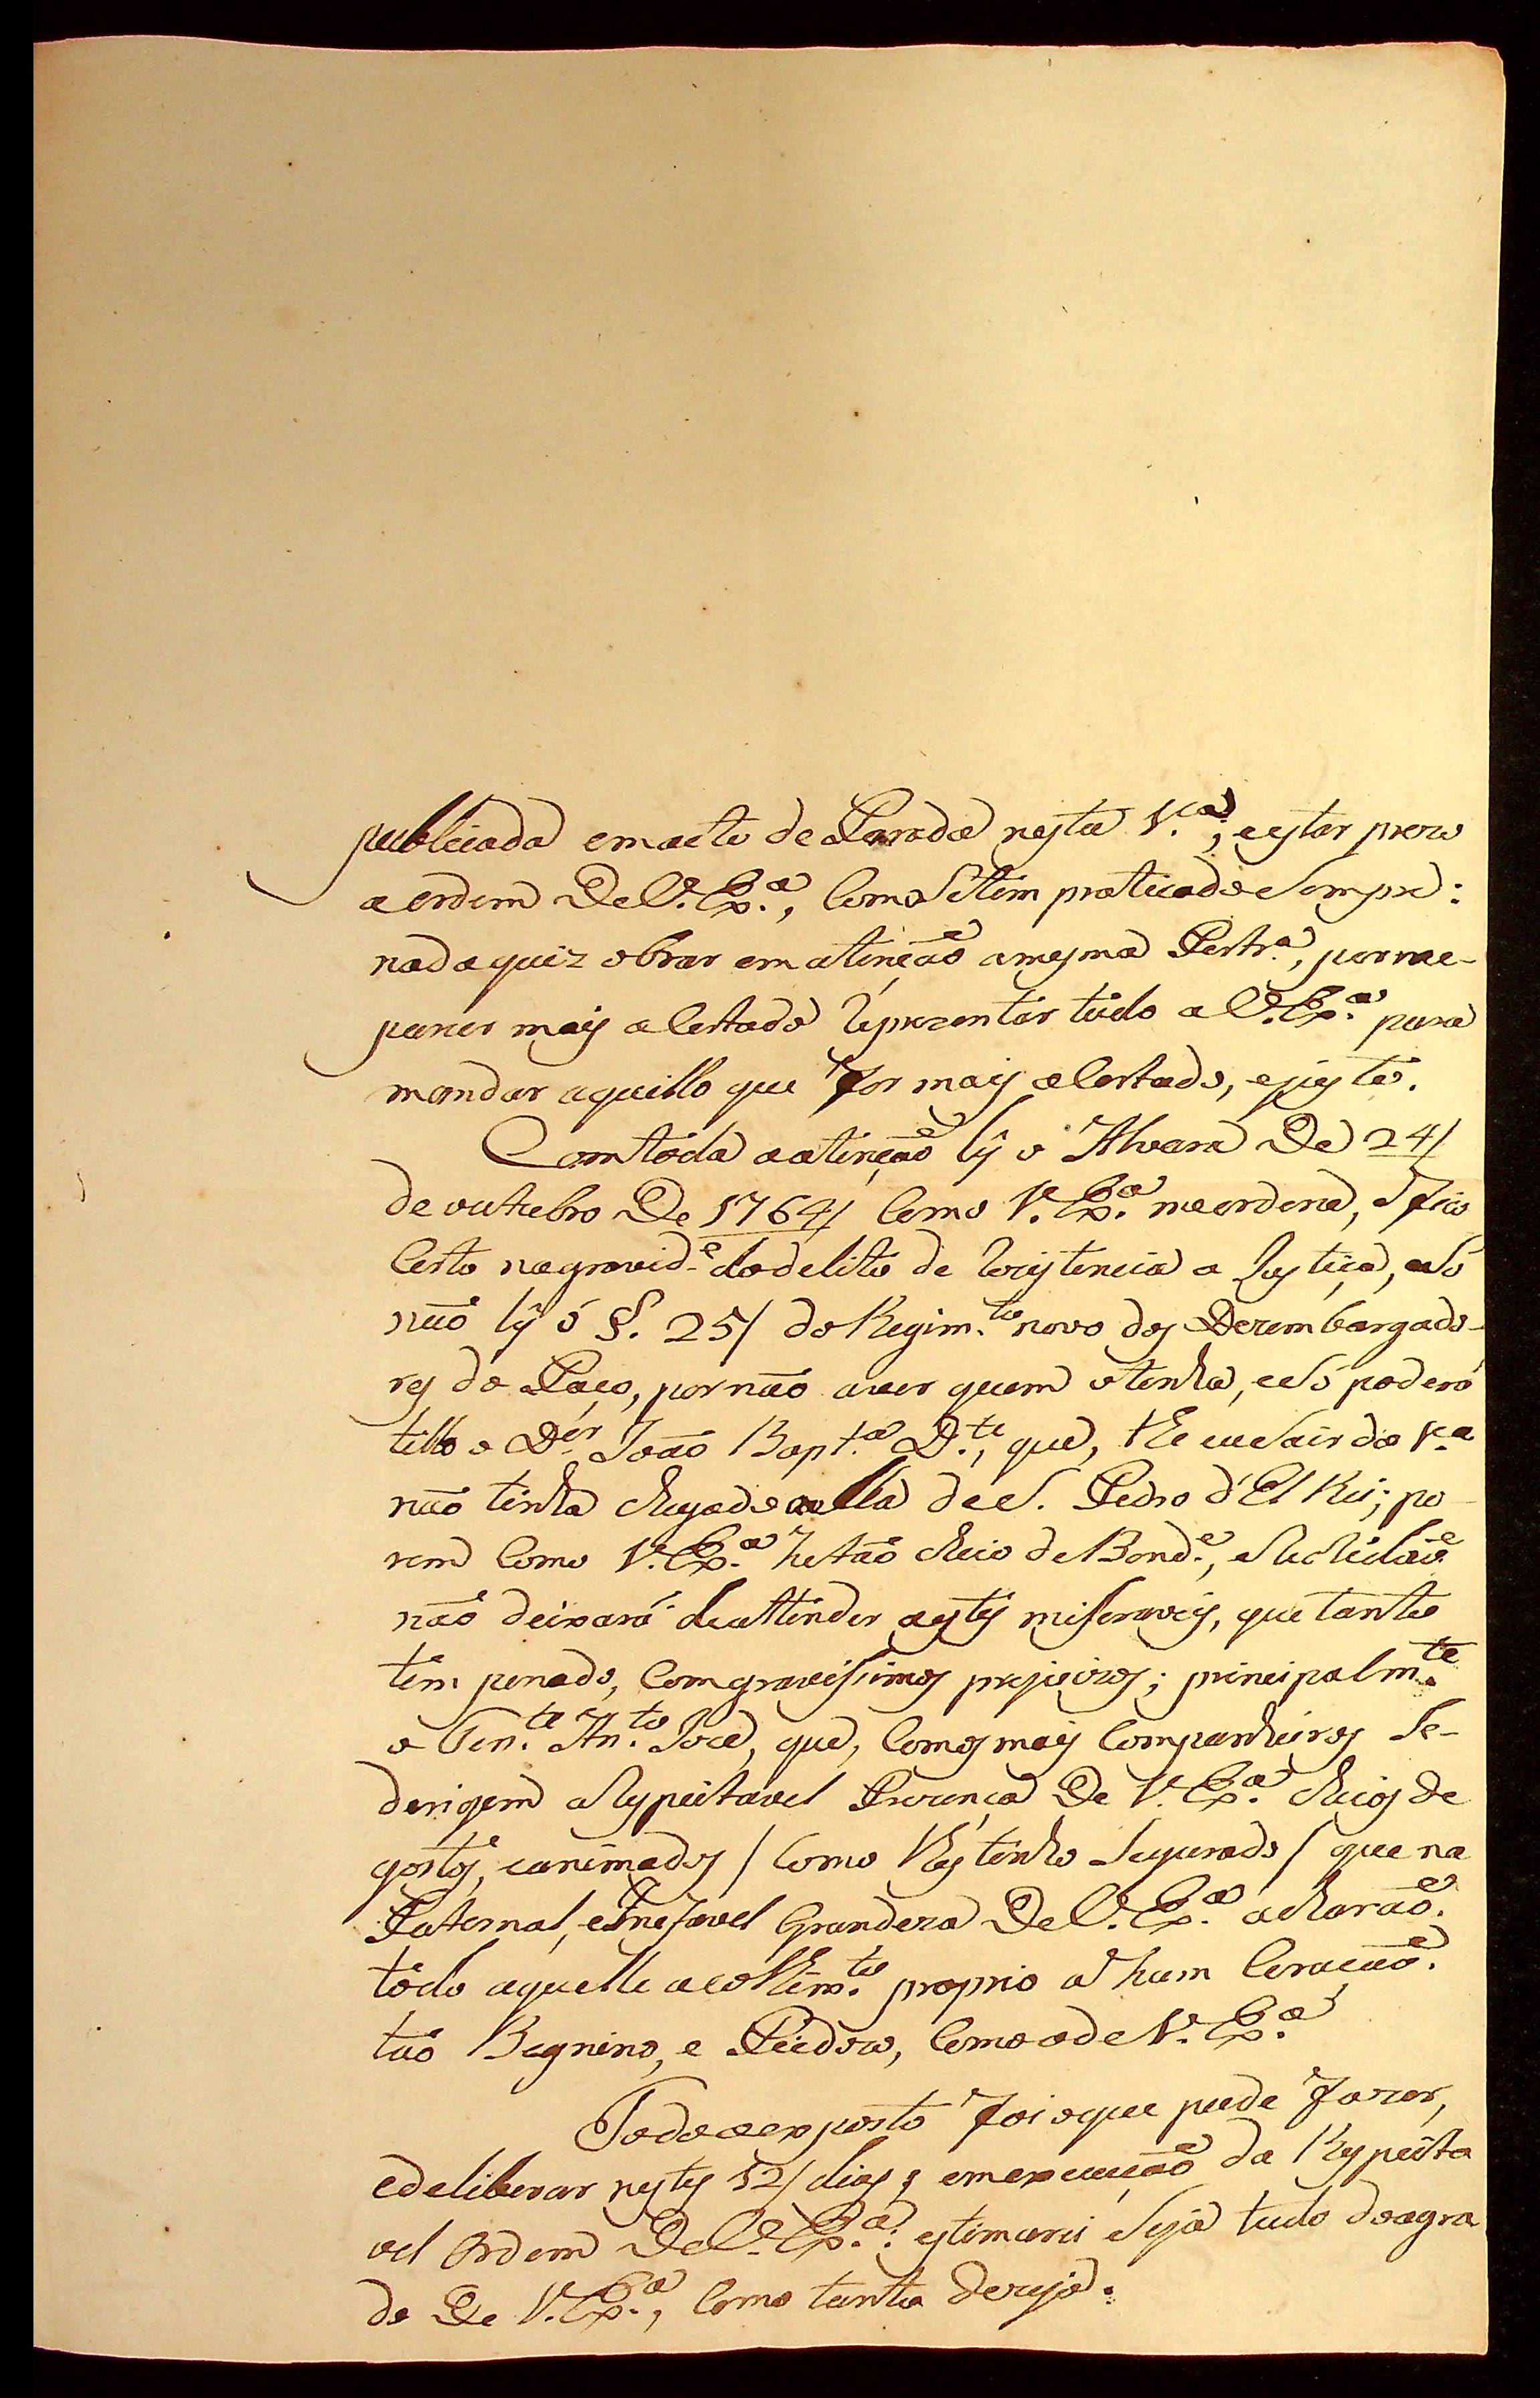 publicada em acto de Parada nesta V.ca, e estar prezo
a ordem De V. Ex.a, Como Se tem praticado Sempre:
nada quiz obrar em atinção a mesma Portr.a, por me-
parecer mais aCertado Reprezentar tudo a V. Ex.a para
mandar aquillo que for mais aCertado, e justo.
Com toda a atinção ly o Alvara De 24/
de outubro De 1764/ Como V. Ex.a me ordena, e fico
Certo na gravid.e do delito de rezistencia a Justiça, e Só
não ly o §. 25/ do Regim.to novo dos Dezembargado-
res do Paço, por não aver quem o tenha, e Só poderá
tello o D.or João Bapt.a D.te, que, the eu Sair da V.a
não tinha chegado a ella de S. Pedro d'El Rei; po-
rem Como V. Ex.a he tão cheio de Bond.e, e Rectidão
não deixará de attender a estes miseraveis, que tanto
tem penado, Com gravissimos prejuizos; principalm.te
o Ten.te An.to Joze, que, Com os mais Companheiros Se-
derigem a Respeitavel Prezença De V. Ex.a cheios de
gostos, e animados / Como lhes tenho Segurado / que na
Paternal, e Inefavel Grandeza De V. Ex.a acharão
todo aquelle acolhim.to proprio a hum Coração
tão Begnino, e Piedozo, Como o de V. Ex.a
Todo o exposto foi o que pude fazer,
e deliberar nestes 12/ dias, em execução da Respeita
vel Ordem De V. Ex.a: estimarei Seja tudo do agra
do De V. Ex.a, Como tanto dezejo.